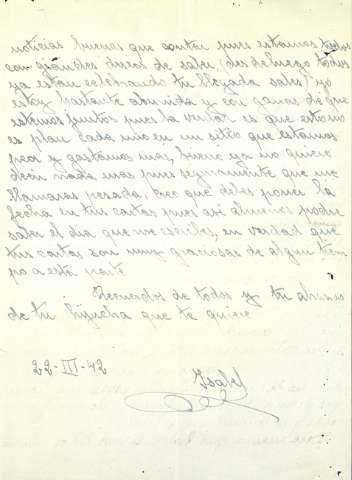 noticias buenas que contar pues estamos todos
con grandes deseos de saber, desde luego todos
ya estan celebrando tu llegada sabes! yo
estoy bastante aburrida y con ganas de que
estemos juntos pues la verdad es que esto no
es plan cada uno en un sitio que estamos
peor y gastamos mas, bueno ya no quiero
decir nada mas pues seguramente que me
llamaras pesada, creo que debes poner la
fecha en tus cartas pues asi al menos podre
saber el dia que nos escribes, en verdad que
tus cartas son muy graciosas de algun tiem
po a esta parte.
Recuerdos de todos y tu
de tu hijucha que te quiere
22-III-42
Isabel